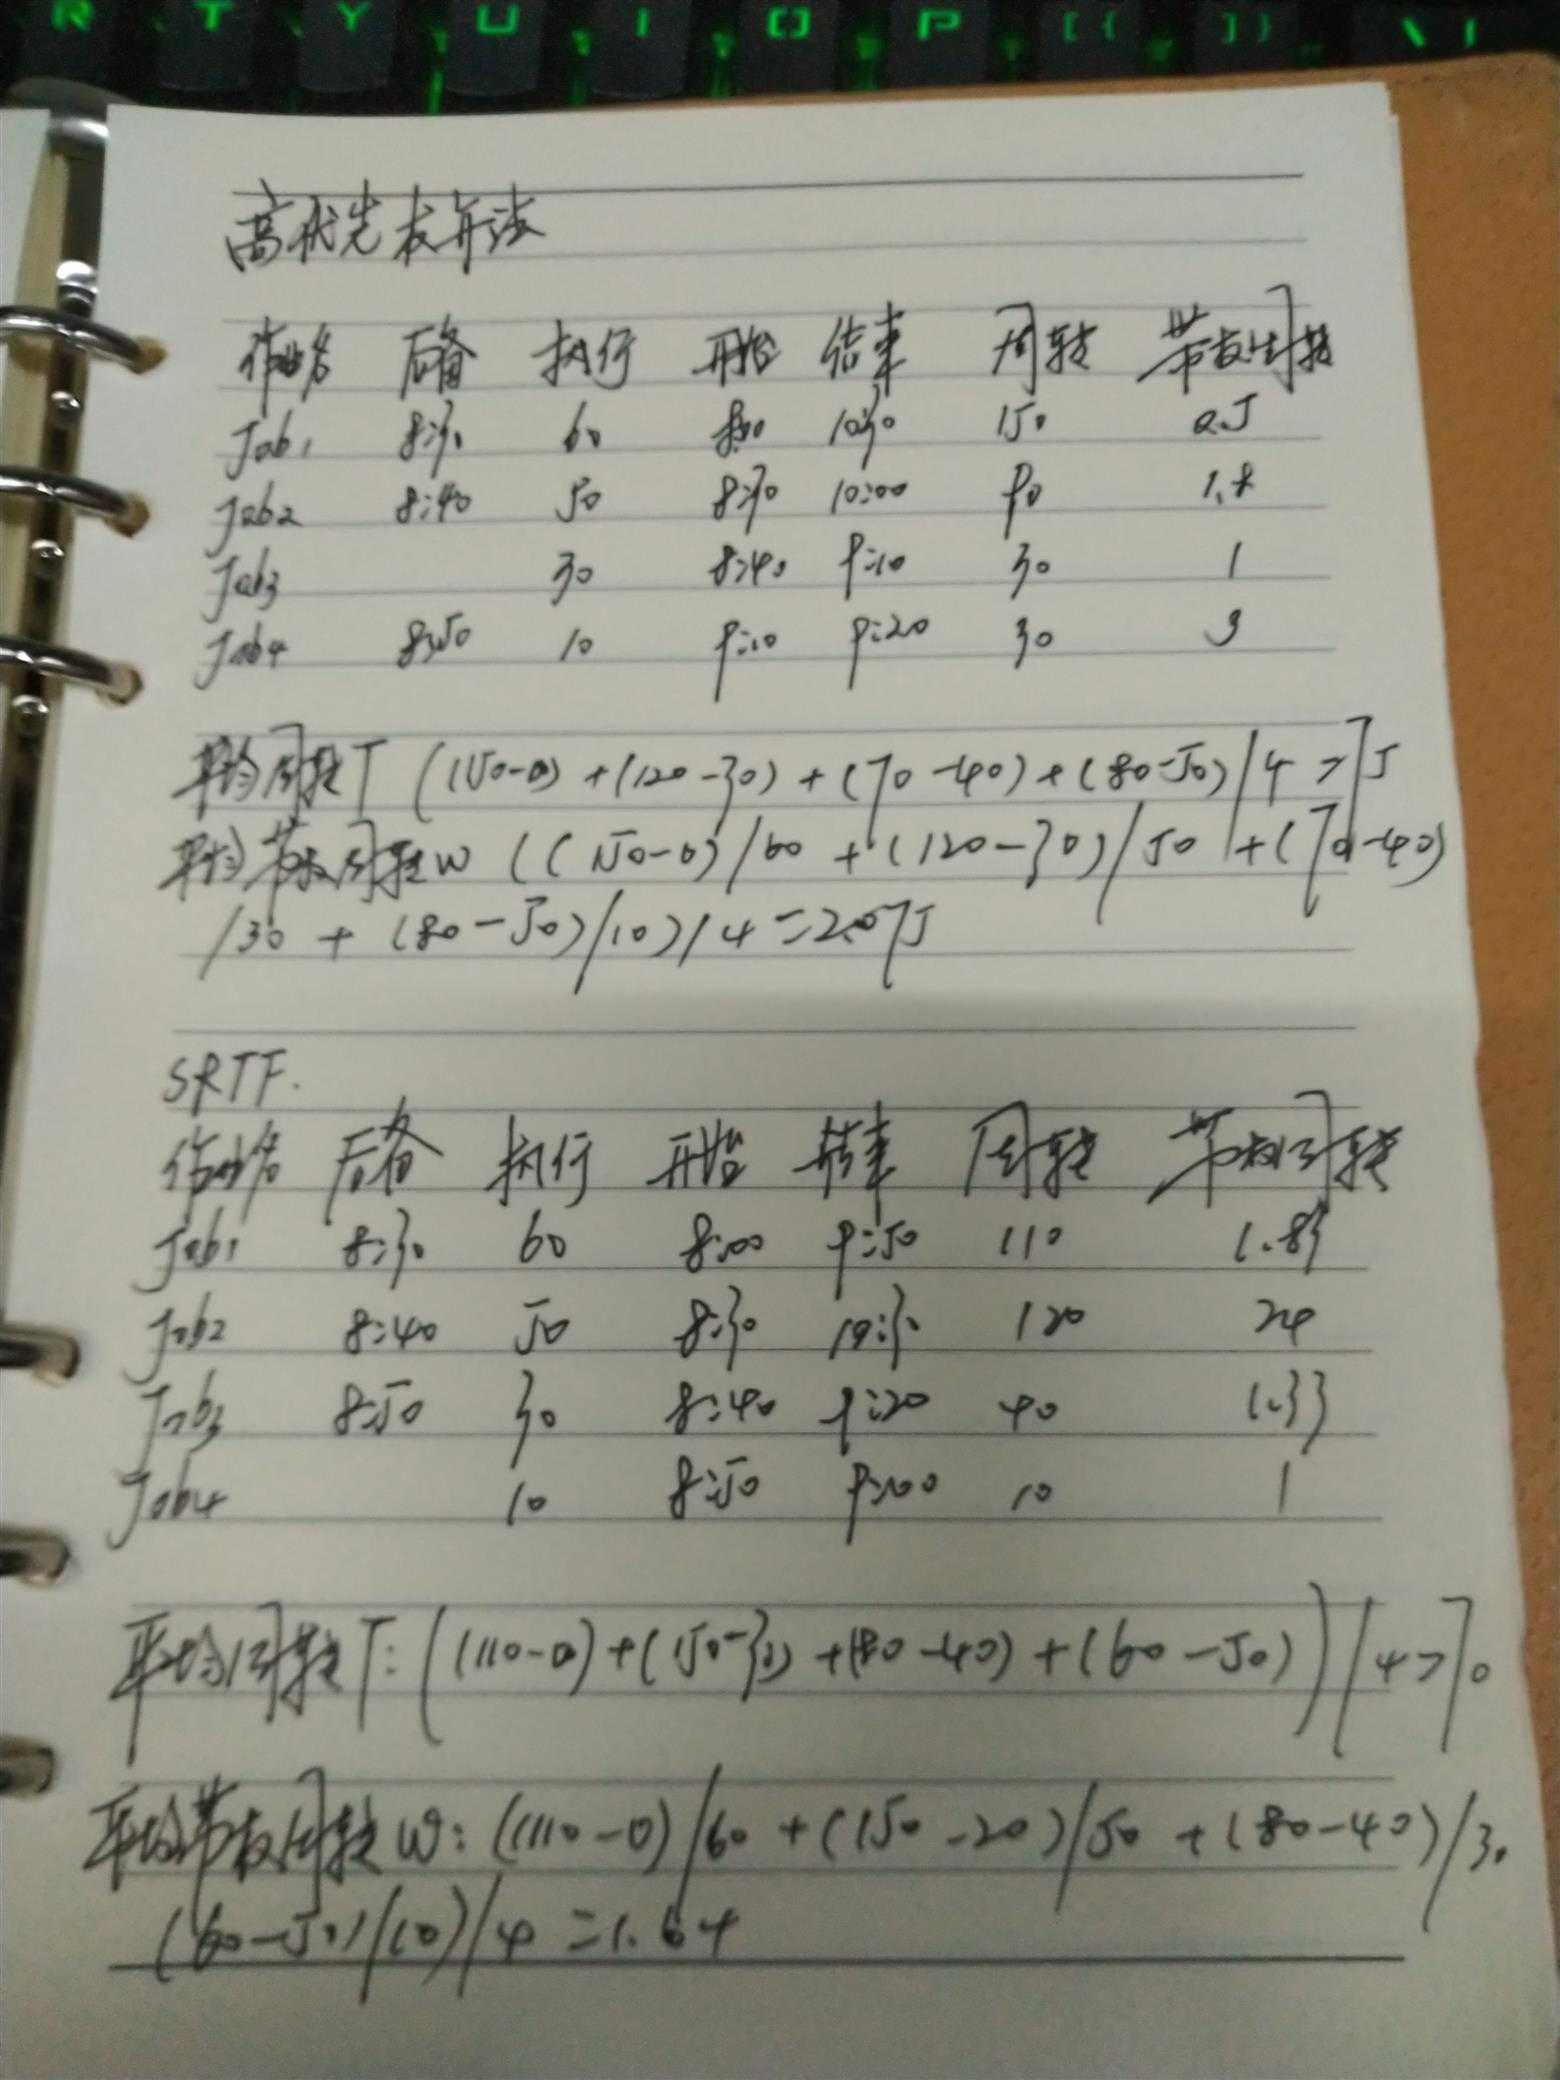 R T Y U I O P [ { ] } \ |
高优先权算法
作业名 后备 执行 开始 结束 周转 带权周转
Job1 8:30 60 8:00 10:30 150 2.5
Job2 8:40 50 8:30 10:00 90 1.8
Job3 30 8:40 9:10 30 1
Job4 8:50 10 9:10 9:20 30 3
平均周转T (150-0)+(120-30)+(70-40)+(80-50)/4=75
平均带权周转W ((150-0)/60+(120-30)/50+(70-40)
/30+(80-50)/10)/4=2.075
SRTF.
作业名 后备 执行 开始 结束 周转 带权周转
Job1 8:30 60 8:00 9:50 110 1.83
Job2 8:40 50 8:30 10:30 120 24
Job3 8:50 30 8:40 9:20 40 1.33
Job4 10 8:50 9:00 10 1
平均周转T:((110-0)+(150-30)+(80-40)+(60-50))/4=70
平均带权周转W:((110-0)/60+(150-20)/50+(80-40)/30
(60-50)/10)/4=1.64